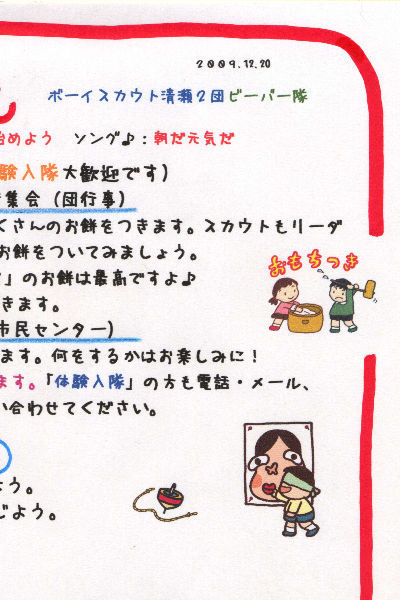 2009.12.20
ボーイスカウト清瀬2団ビーバー隊
始めよう ソング♪：朝だ元気だ
験入隊大歓迎です）
集会（団行事）
くさんのお餅をつきます。スカウトもリーダ
お餅をついてみましょう。
」のお餅は最高ですよ♪
おもちつき
きます。
市民センター）
ます。何をするかはお楽しみに！
ます。「体験入隊」の方も電話・メール、
い合わせてください。
よう。
じよう。